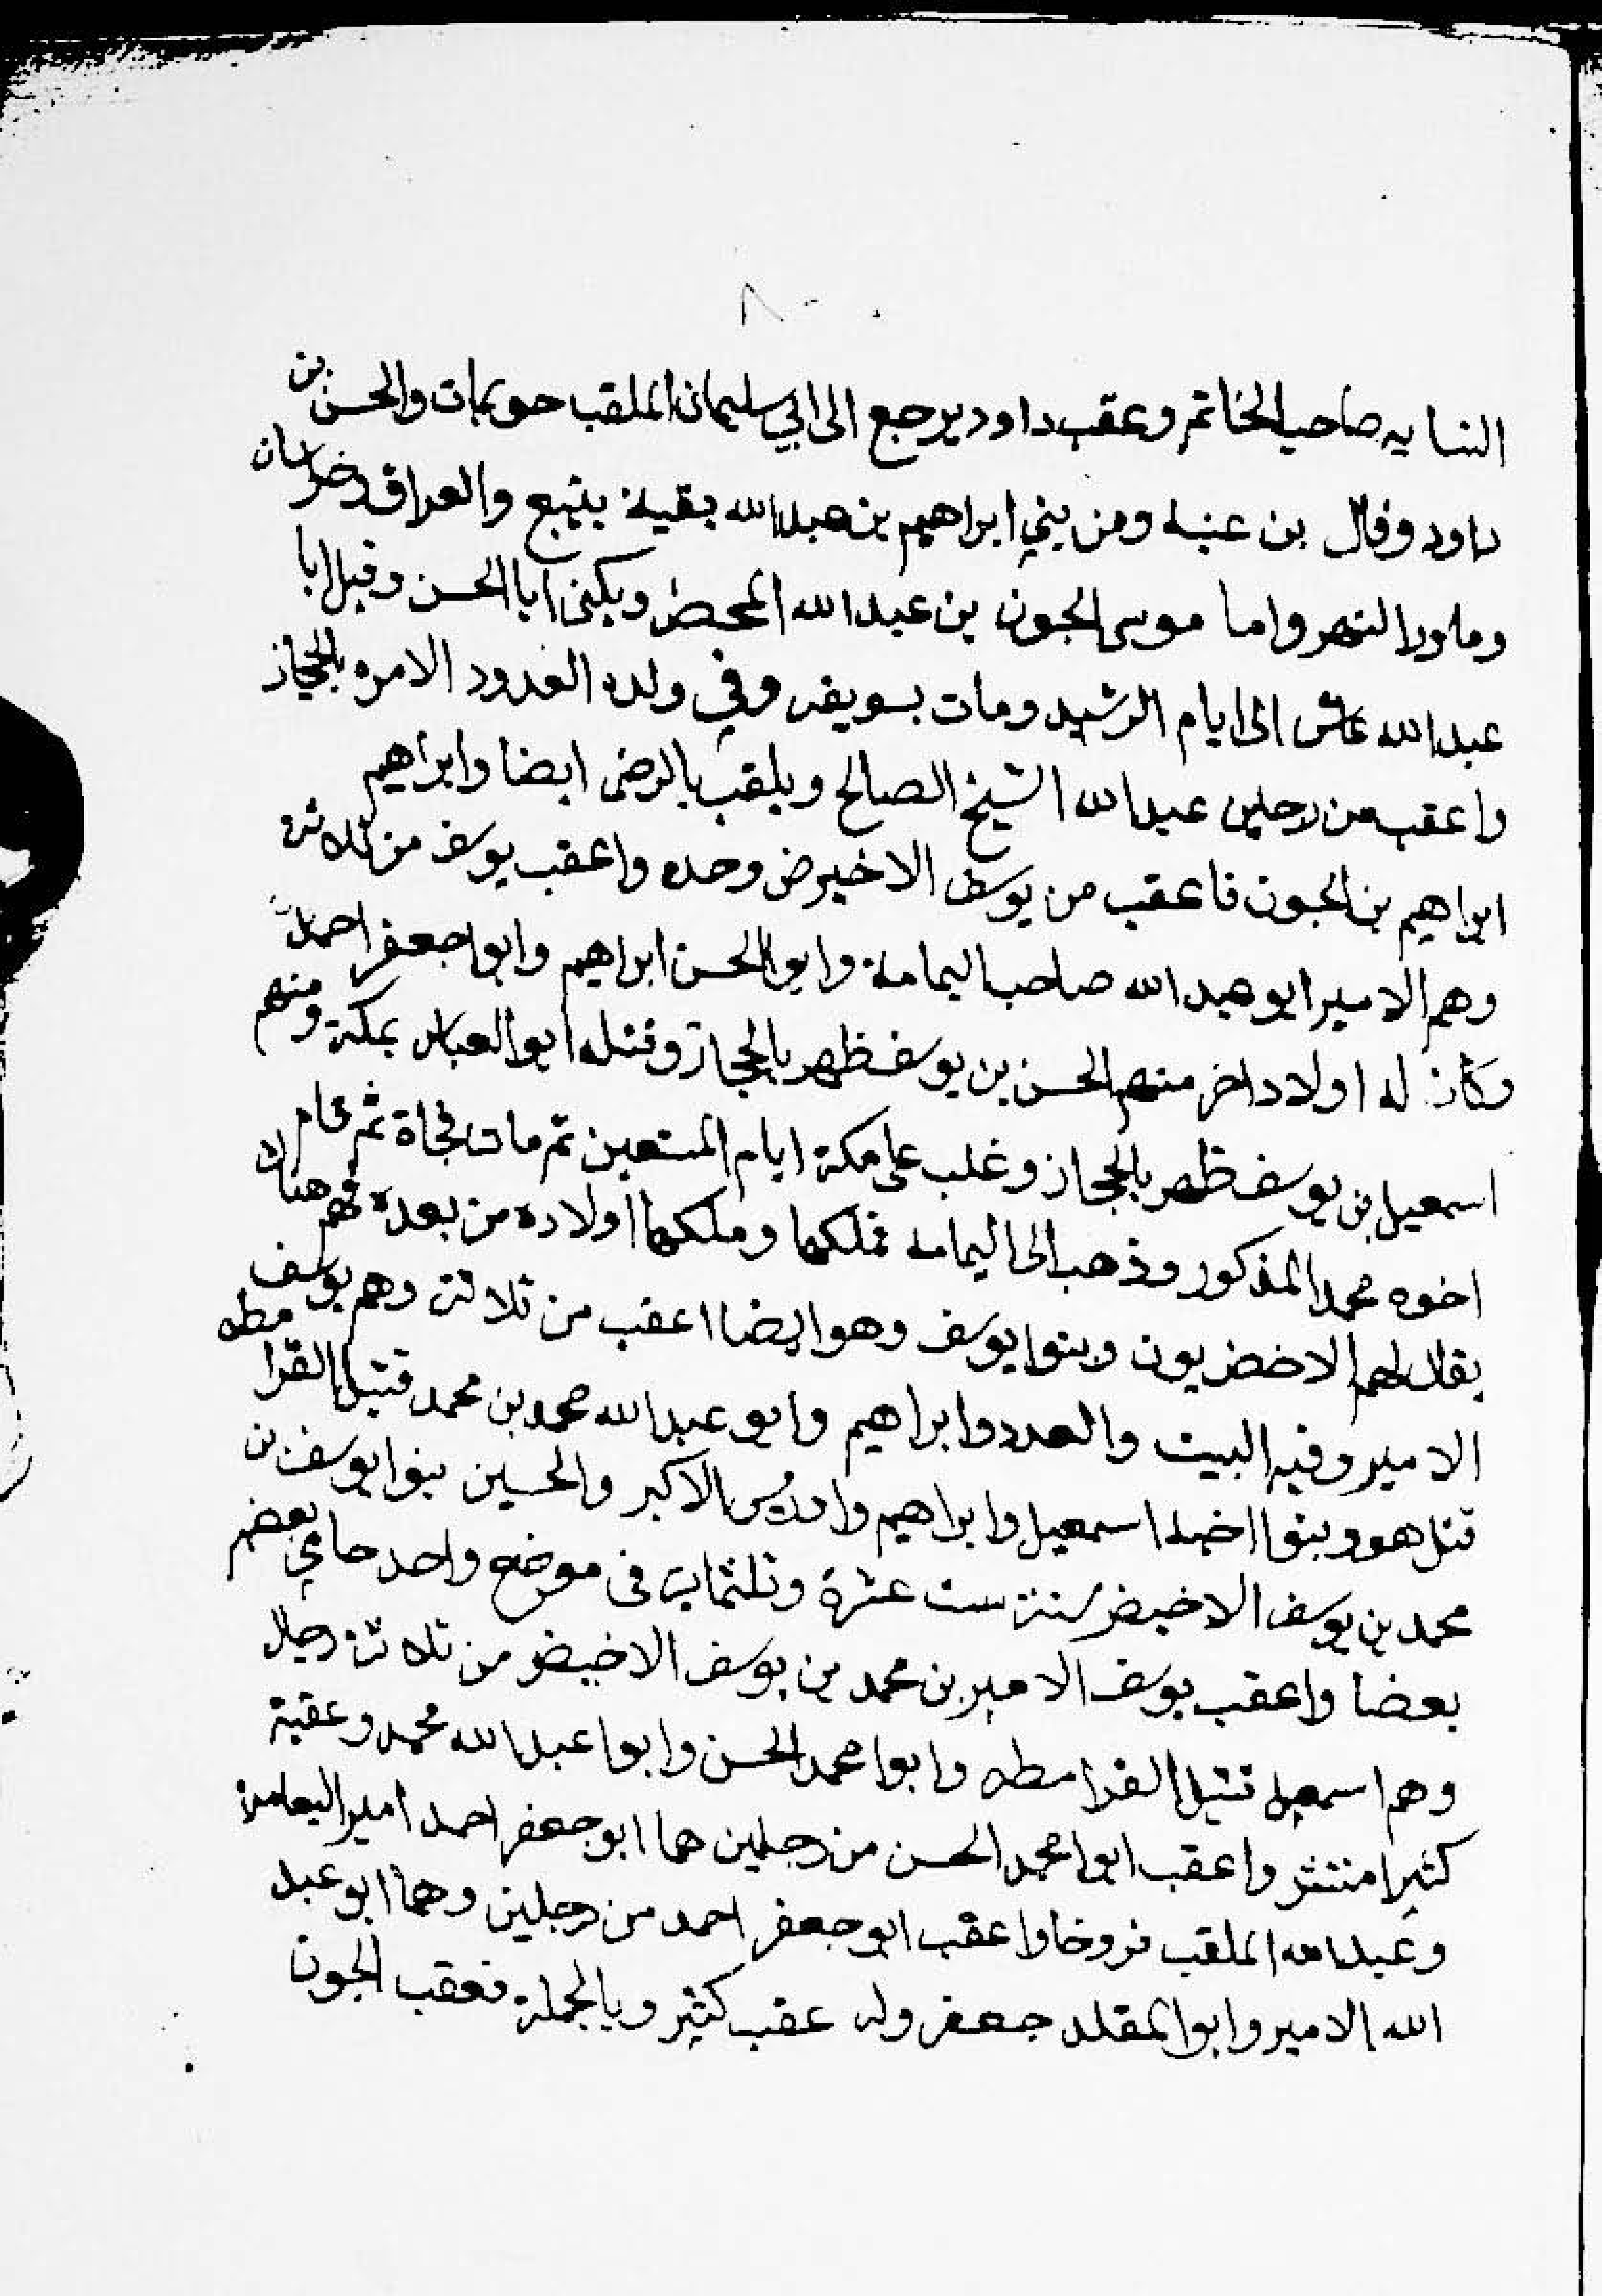 النسابه صاحب الخاتم وعقب داود يرجع الى ابي سليمان الملقب والحسن بن
داود وقال بن عنبه ومن بني ابراهيم بن عبدالله بقية بينبع والعراق وخراسان
وماورا النهر واما موسى الجون بن عبدالله المحض ويكنى ابا الحسن وقيل ابا
عبدالله عاش الى ايام الرشيد ومات بسويقه وفي ولده العدد الامره بالحجاز
واعقب من رجلين عبدالله الشيخ الصالح ويلقب بالرضى ايضا وابراهيم
ابراهيم بن الجون فاعقب من يوسف الاخيرض وحده واعقب يوسف من ثلاثة
وهم الامير ابو عبدالله صاحب اليمامة وابو الحسن ابراهيم وابوا جعفر احمد
وكان له اولاد اخر منهم الحسن بن يوسف ظهر بالحجاز وقتله ابو العباس بمكة ومنهم
اسمعيل بن يوسف ظهر بالحجاز وغلب على مكة ايام المستعين ثم مات فجاة ثم قام
اخوه محمد المذكور وذهب الى اليمامه فملكها وملكها اولاده من بعده فهم هناك
يقال لهم الاخضريون وبنوا يوسف وهو ايضا اعقب من ثلاثة وهم يوسف
الامير وفيه البيت والعدد وابراهيم وابو عبدالله محمد بن محمد قتيل القرا مطه
قتل هو وبنوا اخيه اسمعيل وابراهيم وادريس الاكبر والحسين بنوا يوسف بن
محمد بن يوسف الاخيضر سنة ست عشرة وثلثماية في موضع واحد حامي بعضهم
بعضا واعقب يوسف الامير بن محمد بن يوسف الاخيضر من ثلاثة رجال
وهم اسمعيل قتيل القرامطه وابوا محمد الحسن وابوا عبدالله محمد وعقبة
كثيرا منتشر واعقب ابوا محمد الحسن من رجلين هما ابو جعفر احمد امير اليمامة
وعبدالله الملقب فروخا واعقب ابو جعفر احمد من رجلين وهما ابو عبد
الله الامير وابو المقلد جعفر وله عقب كثير وبالجملة فعقب الجون